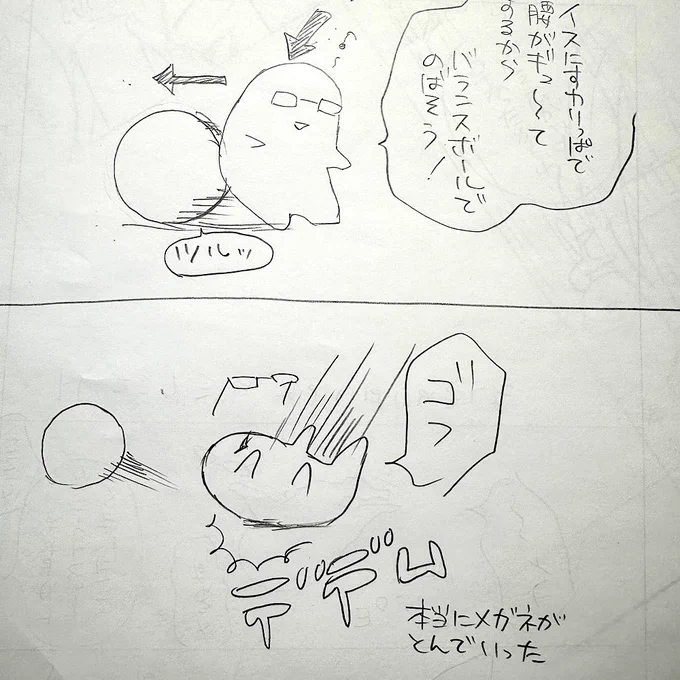 イスにすわりっぱで
腰がギュ〜って
するから
バランスボールで
のばそう!
ツルッ
ゴフ
本当にメガネが
とんでいった